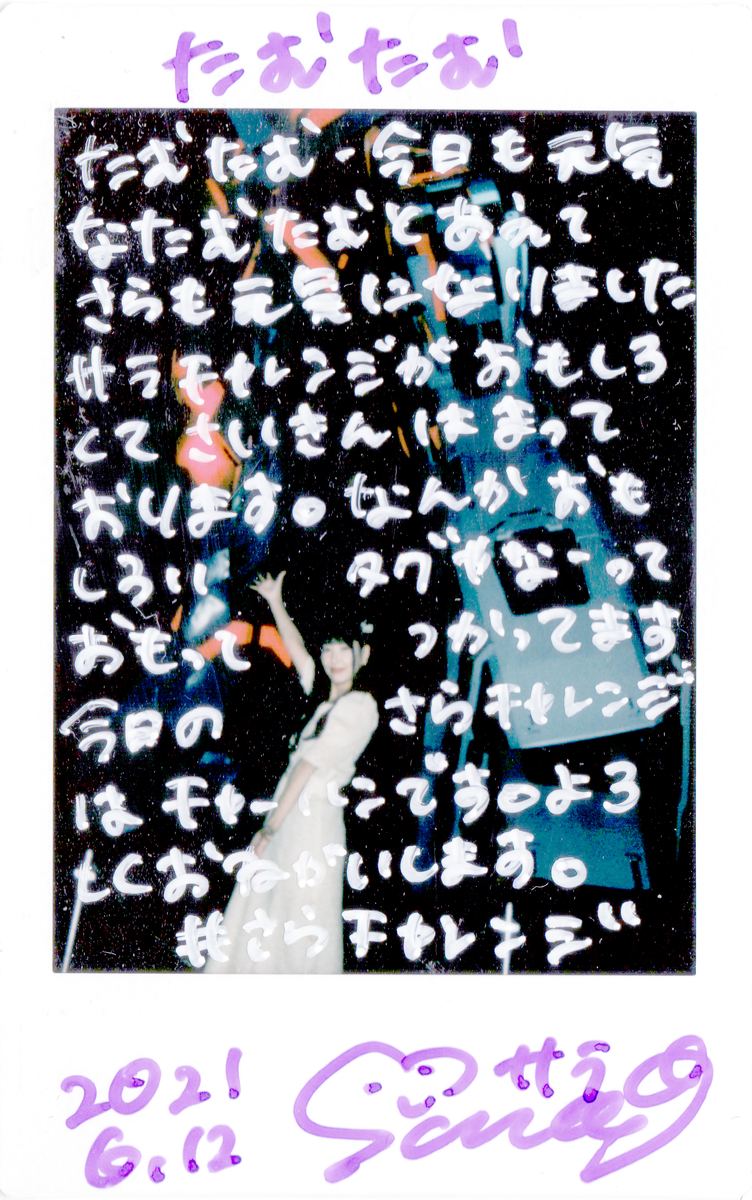 たむたむ
たむたむー今日も元気
なたむたむとあえて
さらも元気になりました
サラチャレンジがおもしろ
くてさいきんはまって
おります。なんかおも
しろい タグやなーって
おもって つかってます
今日の さらチャレンジ
は チャーハンです。よろ
しくおねがいします。
#さらチャレンジ
2021
6.12
サラ